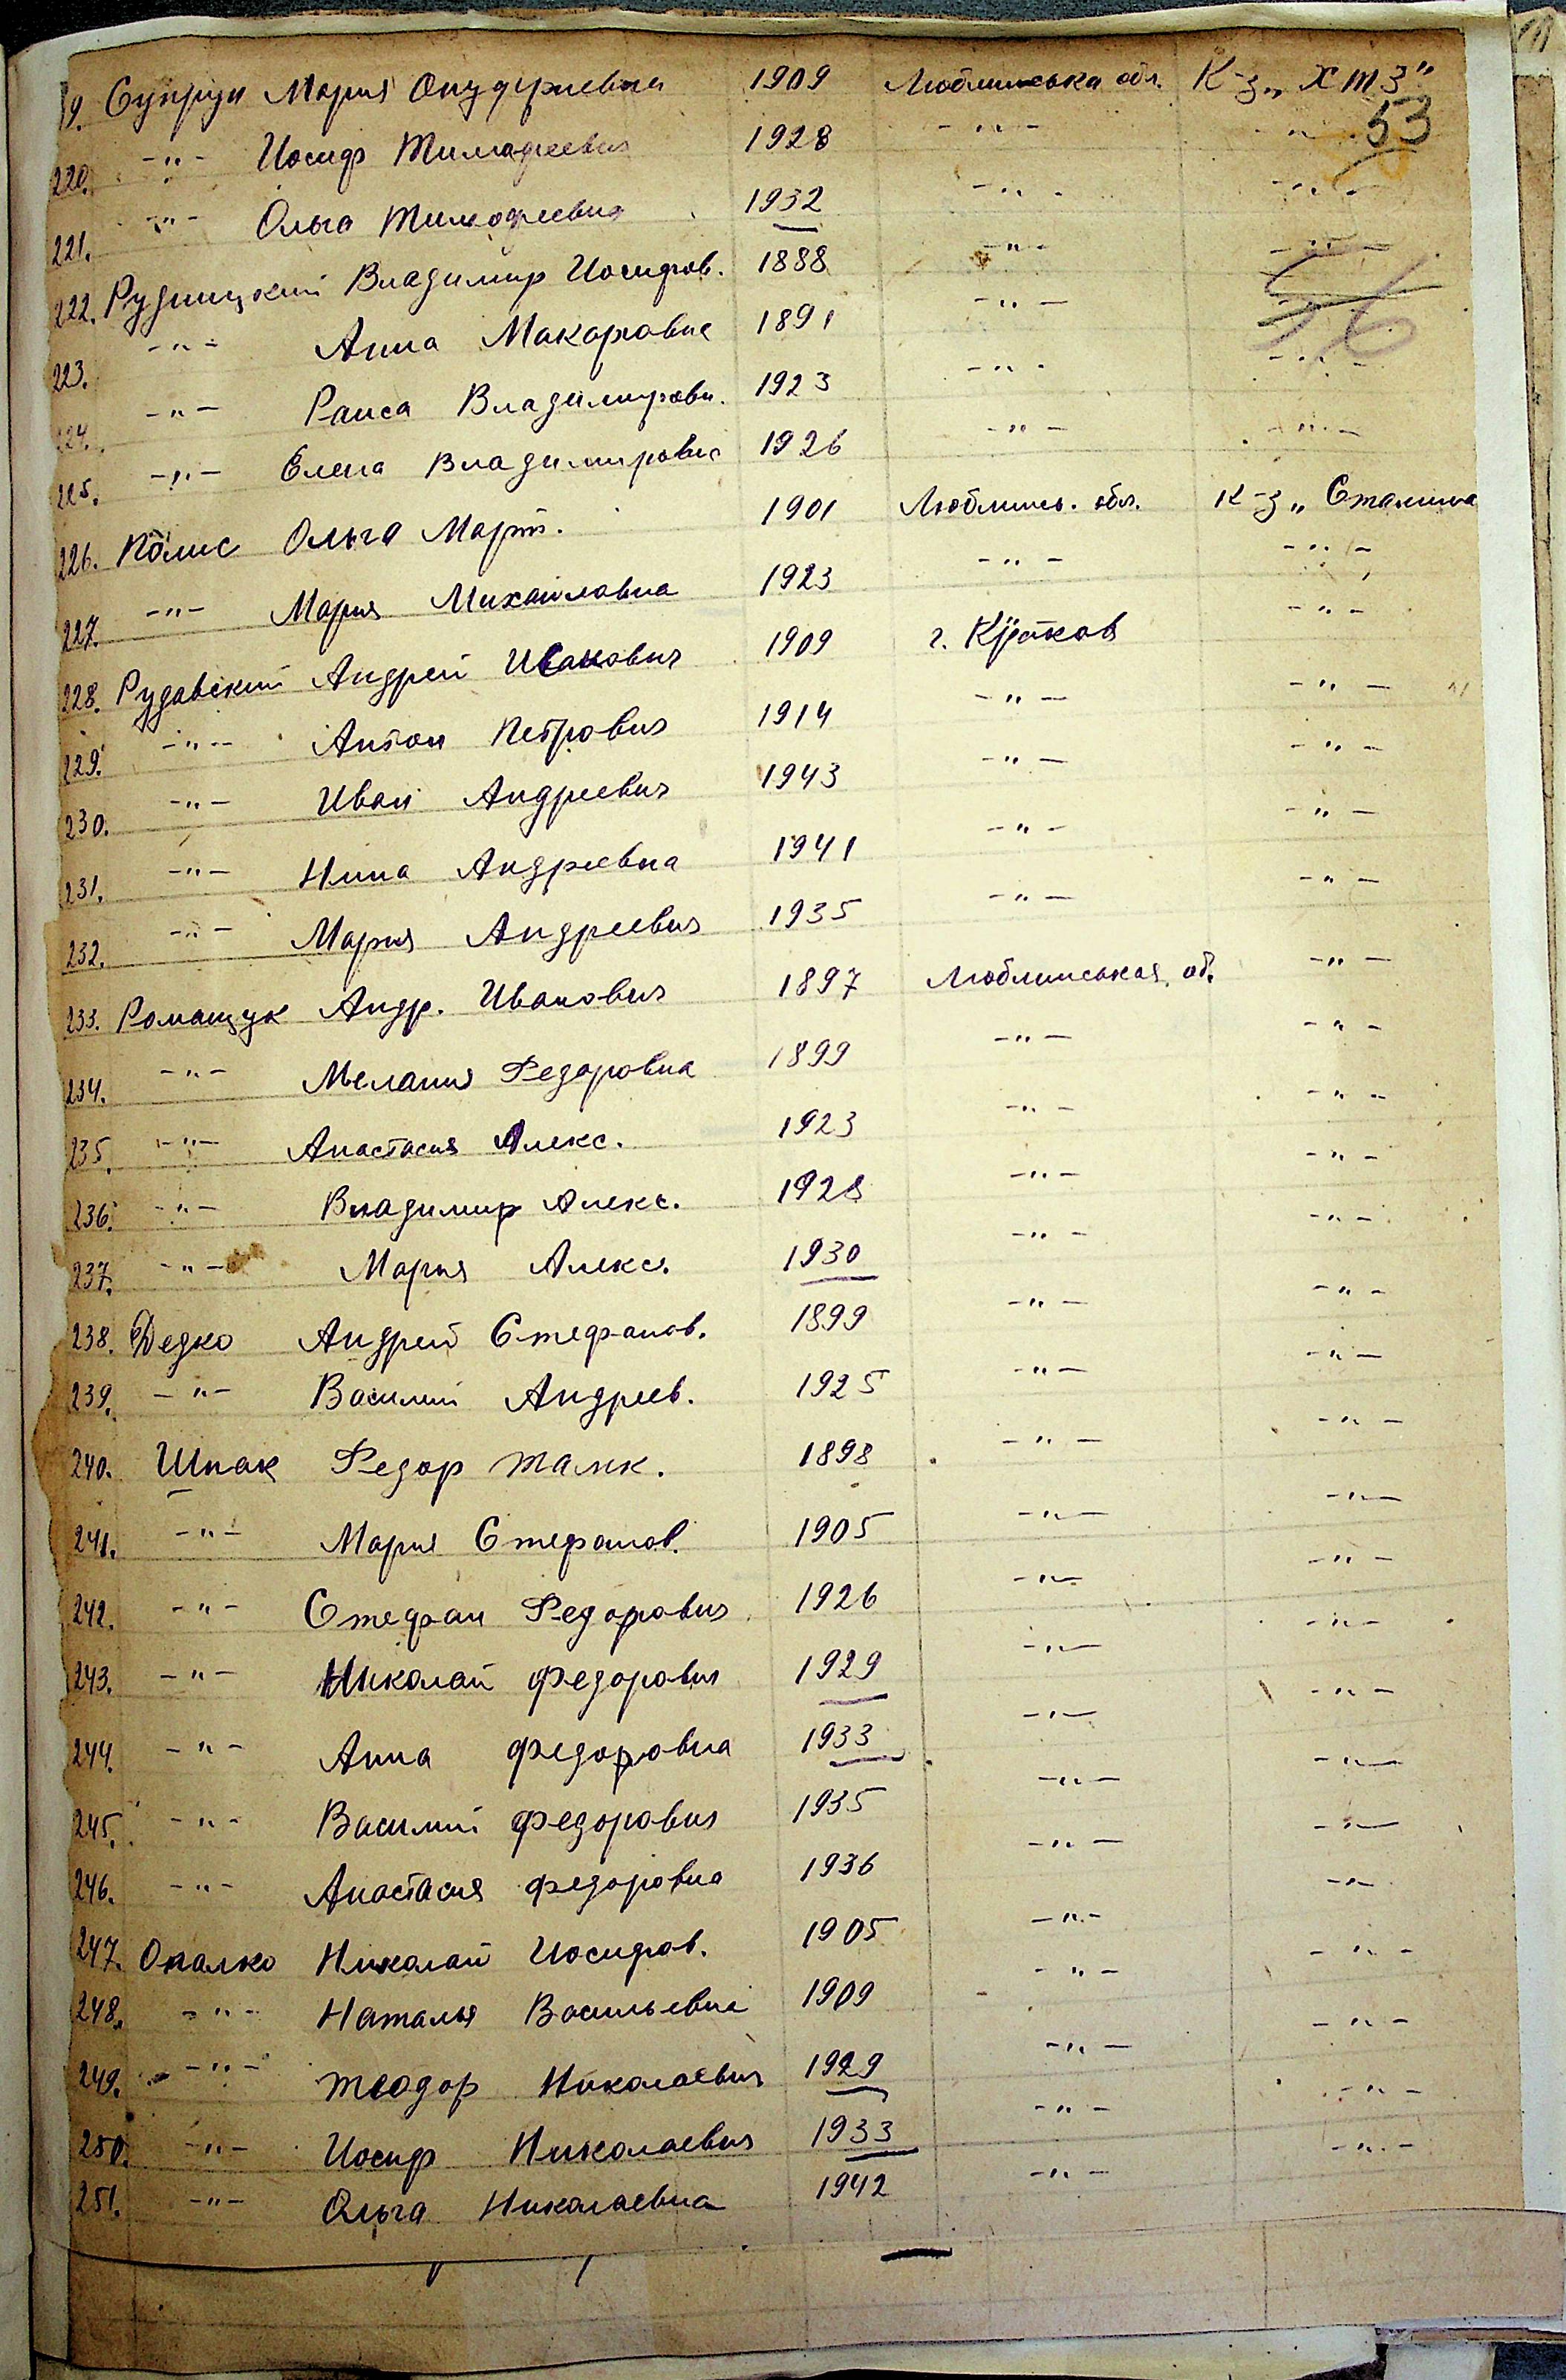 9. Супрун Мария Онуфриевна 1909 Люблинська обл. К-з „ХТЗ"
53
220. -"- Иосиф Тимофеевич 1928 -"- -"-
221. -"- Ольга Тимофеевна 1932 -"- -"-
222. Рудницкий Владимир Иосифов. 1888 -"- -"-
56
223. -"- Анна Макаровна 1891 -"-
224. -"- Раиса Владимировн. 1923 -"- -"-
225. -"- Елена Владимировна 1926 -"- -"-
226. Полис Ольга Март. 1901 Люблинь. обл. К-з „Сталина
227. -"- Мария Михайловна 1923 -"- -"-
228. Рудавский Андрей Иванович 1909 г. Краков -"-
229. -"- Антон Петрович 1914 -"- -"-
230. -"- Иван Андреевич 1943 -"- -"-
231. -"- Нина Андреевна 1941 -"- -"-
232. -"- Мария Андреевна 1935 -"- -"-
233. Романщук Андр. Иванович 1897 Люблинськая об. -"-
234. -"- Мелания Федоровна 1899 -"- -"-
235. -"- Анастасия Алекс. 1923 -"- -"-
236. -"- Владимир Алекс. 1928 -"- -"-
237. -"- Мария Алекс. 1930 -"- -"-
238. Дедко Андрей Стефанов. 1899 -"- -"-
239. -"- Василий Андреев. 1925 -"- -"-
240. Шпак Федор 1898 -"- -"-
241. -"- Мария Стефанов. 1905 -"- -"-
242. -"- Стефан Федорович 1926 -"- -"-
243. -"- Николай Федорович 1929 -"- -"-
244. -"- Анна Федоровна 1933 -"- -"-
245. -"- Василий Федорович 1935 -"- -"-
246. -"- Анастасия Федоровна 1936 -"- -"-
247. Опалко Николай Иосифов. 1905 -"- -"-
248. -"- Наталья Васильевна 1909 -"- -"-
249. -"- Теодор Николаевич 1929 -"- -"-
250. -"- Иосиф Николаевич 1933 -"- -"-
251. -"- Ольга Николаевна 1942 -"- -"-